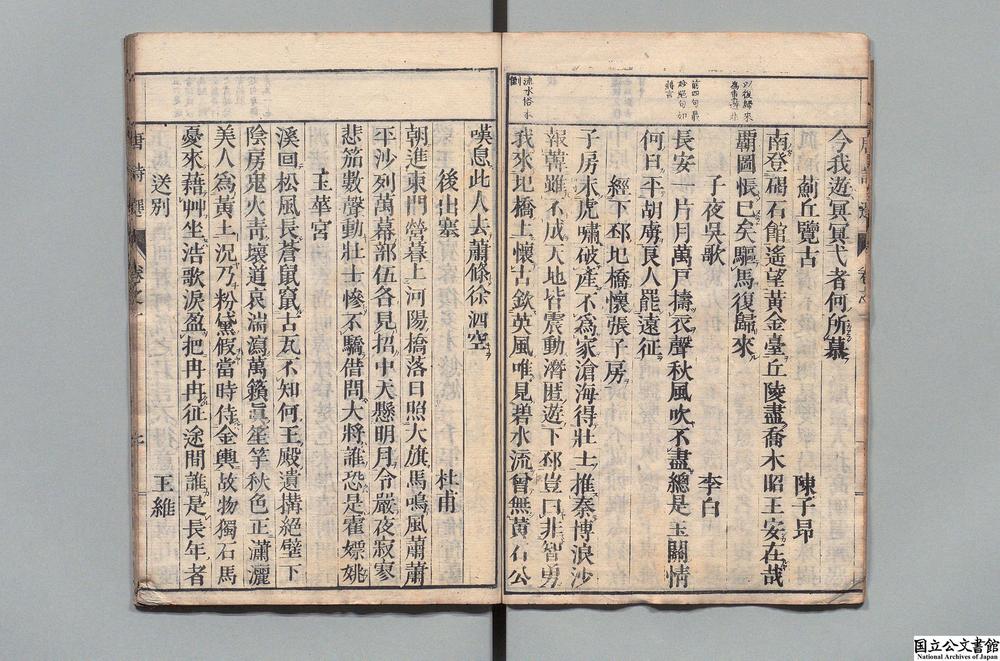 今我遊冥冥弋者何所慕
薊丘覽古
陳子昂
南登碣石館遙望黃金臺丘陵盡喬木昭王安在哉
霸圖悵已矣驅馬復歸來
子夜吳歌
李白
長安一片月萬戸擣衣聲秋風吹不盡總是玉關情
何日平胡虜良人罷遠征
經下邳圯橋懷張子房
子房未虎嘯破產不爲家滄海得壯士推秦博浪沙
報韓雖不成天地皆震動濟匿遊下邳豈曰非智勇
我來圯橋上懷古欽英風唯見碧水流曾無黃石公
嘆息此人去蕭條徐泗空
後出塞
杜甫
朝進東門營暮上河陽橋落日照大旗馬鳴風蕭蕭
平沙列萬幕部伍各見招中天懸明月令嚴夜寂寥
悲笳數聲動壯士慘不驕借問大將誰恐是霍嫖姚
玉華宮
溪回松風長蒼鼠竄古瓦不知何王殿遺搆絕壁下
陰房鬼火青壞道哀湍瀉萬籟眞笙竽秋色正瀟灑
美人爲黃土況乃粉黛假當時侍金輿故物獨石馬
憂來藉艸坐浩歌淚盈把冉冉征途間誰是長年者
送別
王維
唐詩選
國立公文書館
National Archives of Japan